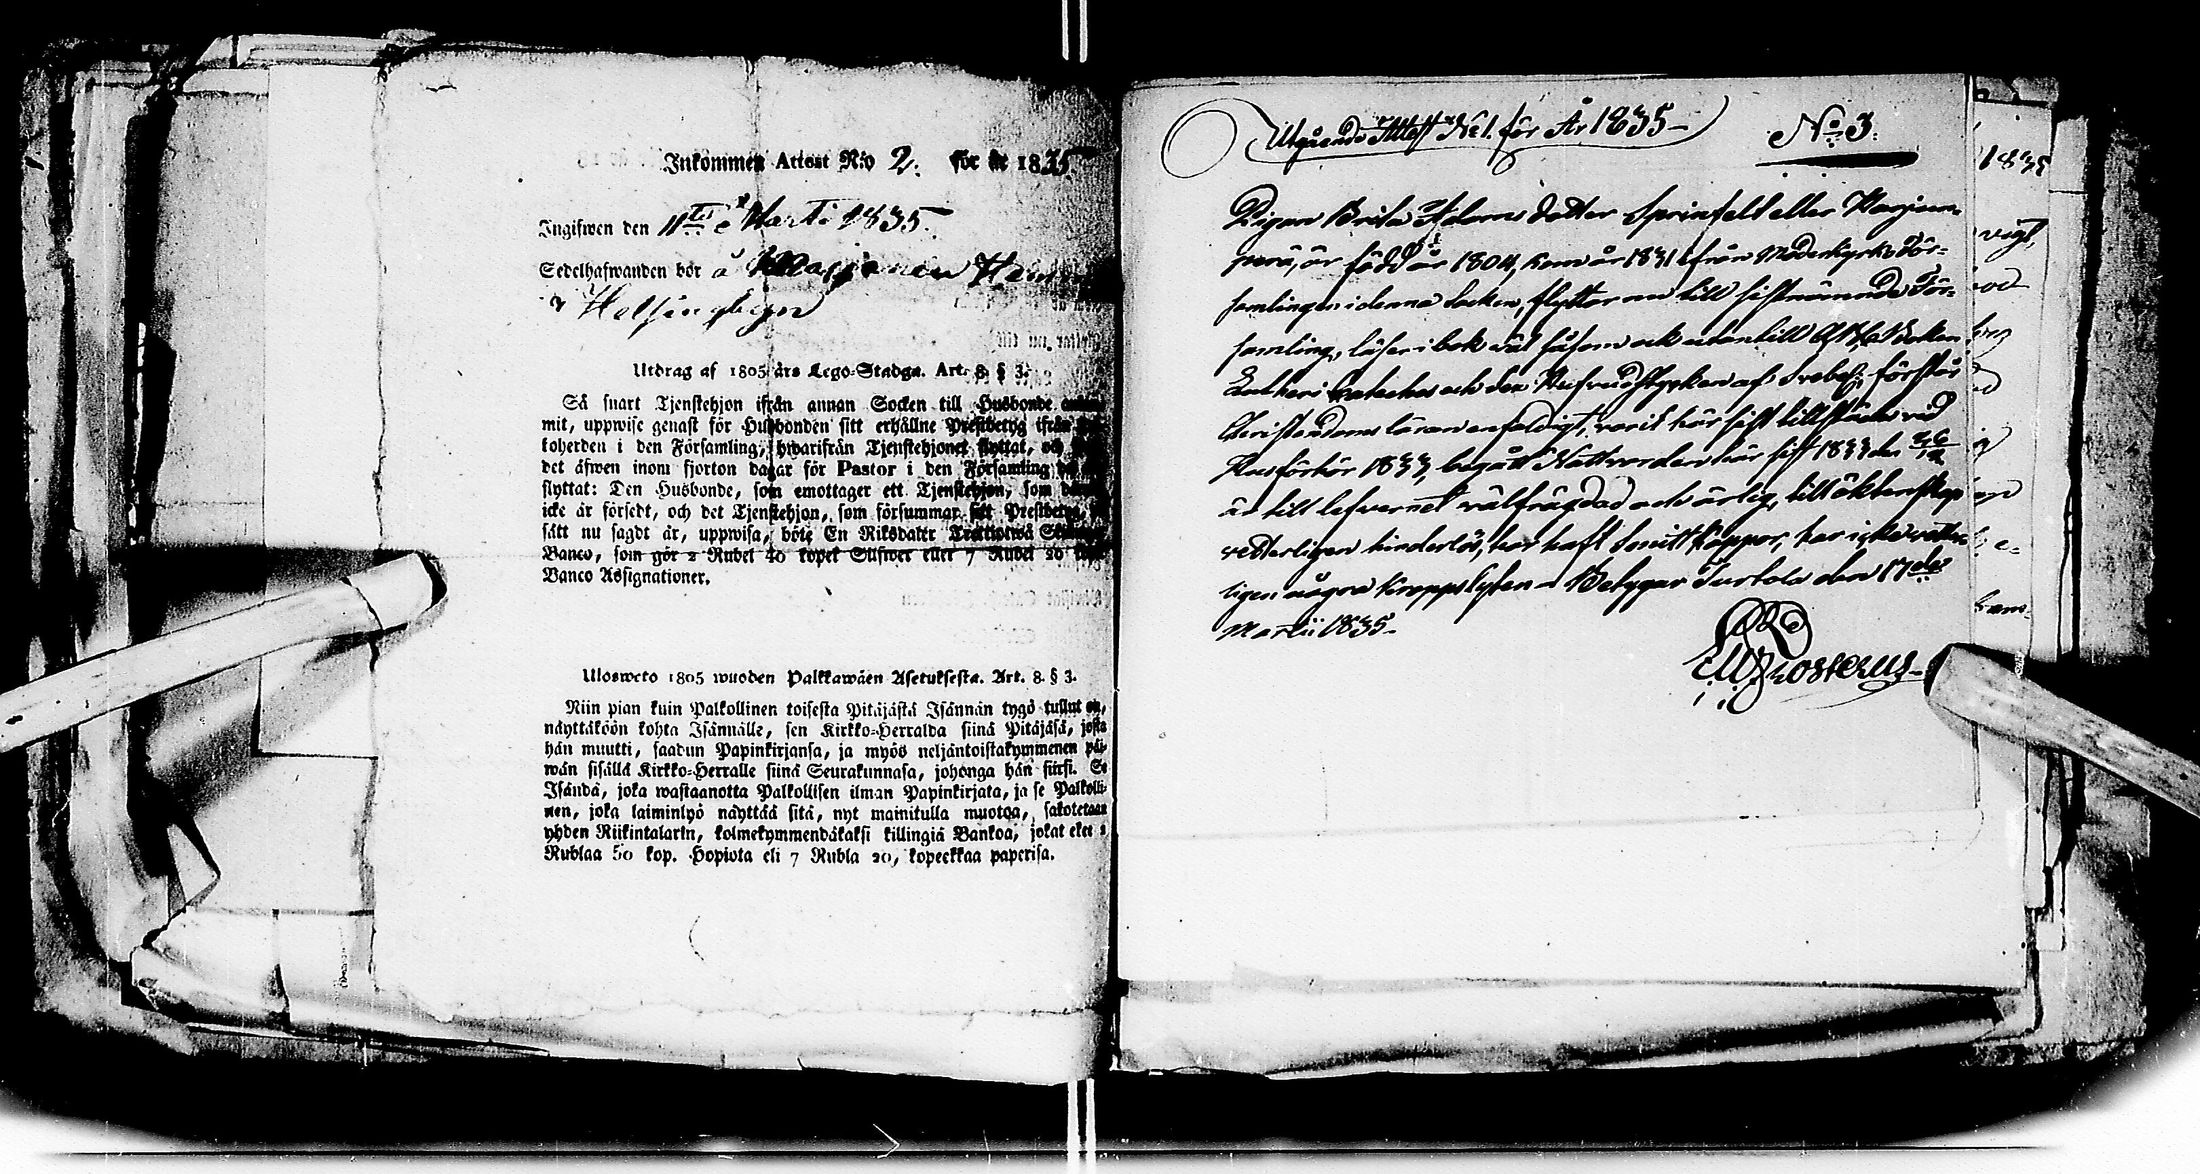 Inkommen Attest N:o 2. för år 1835.
Ingifwen den 11te Martii 1835.
Sedelhafwanden bor å
i Helsingbyn
Utdrag af 1805 års Lego-Stadga. Art. 8. § 3.
Så snart Tjenstehjon ifrån annan Socken till Husbonde
mit, uppwise genast för Husbonden sitt erhållne Prestbetyg ifrån
toherden i den Församling, hwarifrån Tjenstehjonet flyttat, och
det äfwen inom fjorton dagar för Pastor i den Församling
flyttat: Den Husbonde, som emottager ett Tjenstehjon, som
icke är försedt, och det Tjenstehjon, som försummar sitt Prestbetyg,
sätt nu sagdt är, uppwisa, böte En Riksdaler Trettiotwå
Banco, som gör 2 Rubel 40 kopek Silfwer eller 7 Rubel 20
Banco Assignationer.
Ulosweto 1805 wuoden Palkkawäen Asetuksesta. Art. 8. § 3.
Niin pian kuin Palkollinen toisesta Pitäjästä Isännän tygö tullut on,
näyttäköön kohta Isännälle, sen Kirkko-Herralda siinä Pitäjäsä, josta
hän muutti, saadun Papinkirjansa, ja myös neljäntoistakymmenen päi-
wän sisällä Kirkko-Herralle siinä Seurakunnasa, johonga hän siirsi. Se
Isändä, joka wastaanotta Palkollisen ilman Papinkirjata, ja se Palkolli-
nen, joka laiminlyö näyttää sitä, nyt mainitulla muotoa, sakotetaan
yhden Riikintalarin, kolmekymmendäkaksi killingiä Bankoa, jotat eket 2
Rublaa 50 kop. Hopiota eli 7 Rubla 20, kopeekkaa paperisa.
Utgående Attest N:o 1. för År 1835
No 3.
Pigan Brita Adams dotter Sprinfelt eller Karjan-
perä, är född år 1804, kom år 1831 ifrån Moderkyrko För-
samlingen i denna Socken, flyttar nu till sistnämnde För-
samling, läser i bok väl såsom ock utantill
Lutheri Cateches och den af Svebel; förstår
Christendoms läran enfaldigt, varit här sist tillstädes vid
Husförhör 1833, begått Nattvarden här sist 1833 den
är till lefvernet välfrägdad och ärlig, till äktenskap
vetterligen hinderlös, har haft Smittkoppor, har icke vetter-
ligen några kroppslyten. Betygar Turtola den 17de
Martii 1835.
1835